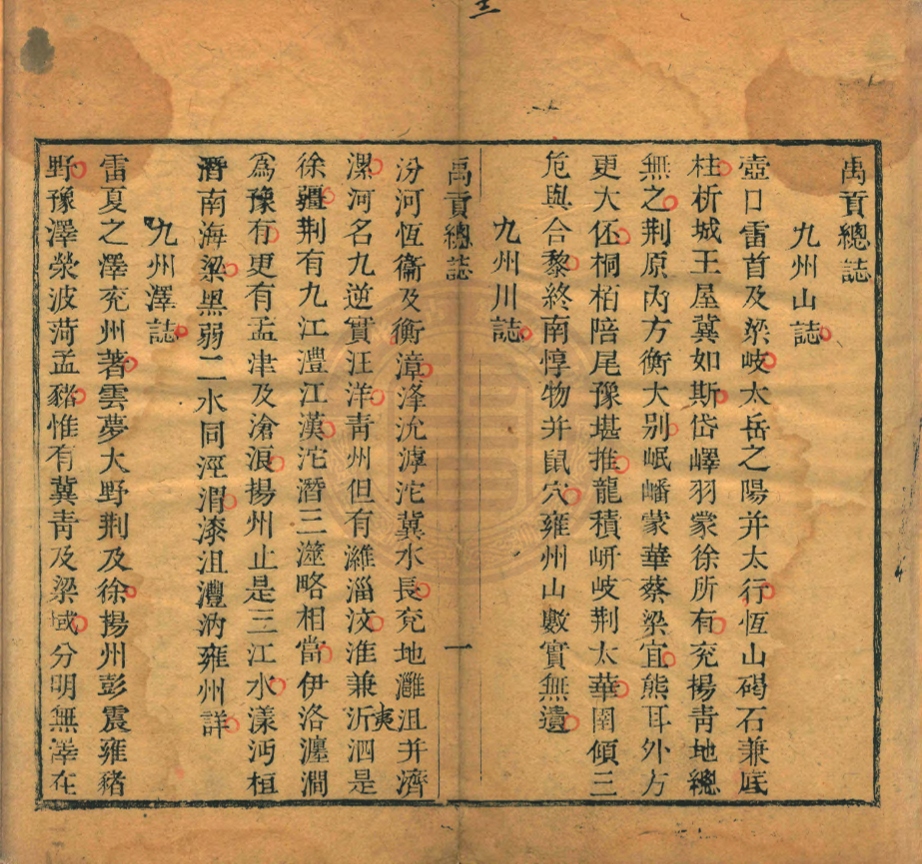 禹貢總誌
九州山誌
壺口雷首及梁岐太岳之陽并太行恆山碣石兼底
柱析城王屋冀如斯岱嶧羽蒙徐所有兖揚靑地總
無之荆原內方衡大别岷嶓蒙華蔡梁宜熊耳外方
更大伾桐栢陪尾豫堪推龍積岍岐荆太華圉傾三
危與合黎終南惇物并鼠穴雍州山數實無遺
九州川誌
禹貢總誌
一
汾河恆衞及衡漳洚沇滹沱冀水長兖地灉沮并濟
漯河名九逆實汪洋靑州但有濰淄汶淮兼沂泗是
夷
徐疆荆有九江澧江漢沱潛三澨略相當伊洛瀍澗
爲豫有更有孟津及滄浪揚州止是三江水漾沔桓
潛南海梁黑弱二水同涇渭漆沮灃汭雍州詳
九州澤誌
雷夏之澤兖州著雲夢大野荆及徐揚州彭震雍豬
野豫澤滎波菏孟豬惟有冀靑及梁域分明無澤在